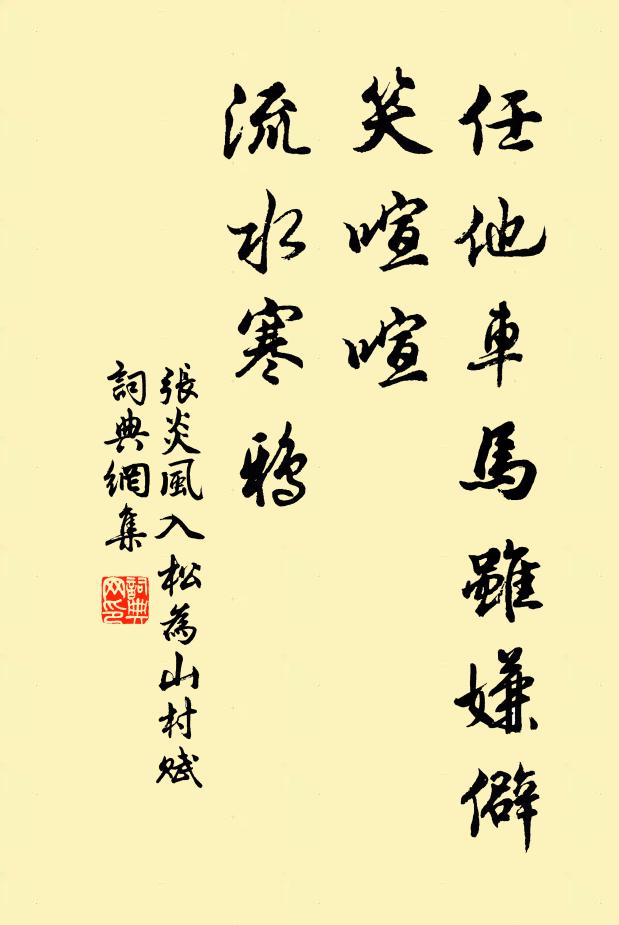 任他車馬雖嫌僻
笑喧喧
流水寒鴉
張炎風入松為山村賦
詞典網集
詞典網印